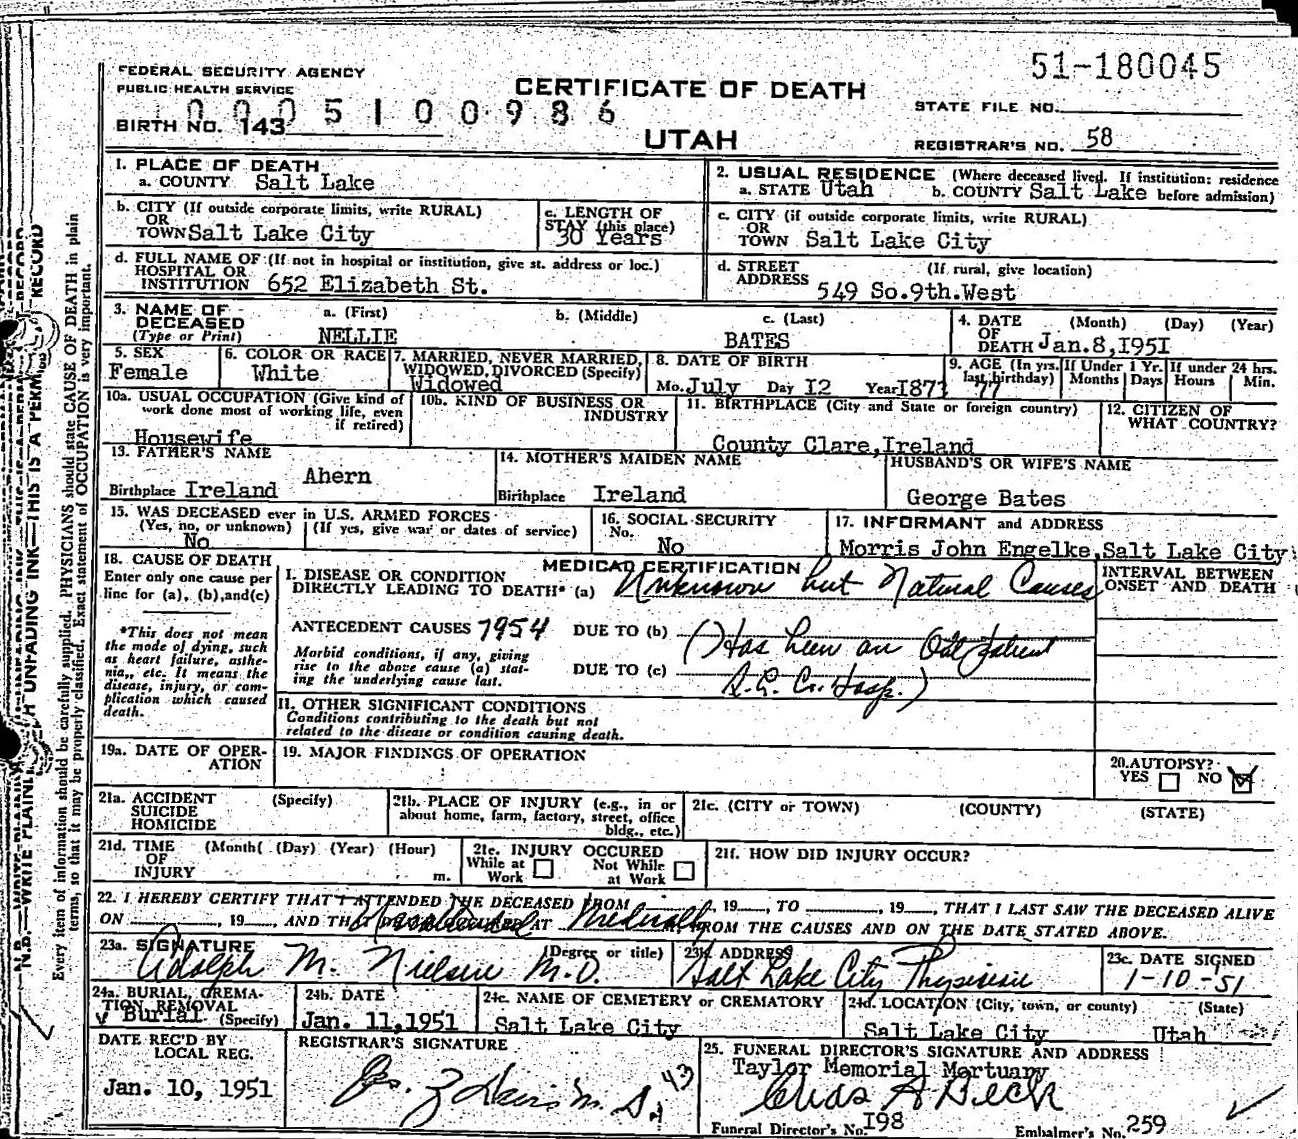 51-180045
FEDERAL SECURITY AGENCY
PUBLIC HEALTH SERVICE
CERTIFICATE OF DEATH
STATE FILE NO.
0005100986
BIRTH NO. 143
UTAH
REGISTRAR'S NO. 58
1. PLACE OF DEATH
a. COUNTY Salt Lake
2. USUAL RESIDENCE (Where deceased lived. If institution: residence
a. STATE Utah b. COUNTY Salt Lake before admission)
b. CITY (If outside corporate limits, write RURAL)
OR
TOWN Salt Lake City
c. LENGTH OF
STAY (this place)
30 Years
c. CITY (if outside corporate limits, write RURAL)
OR
TOWN Salt Lake City
d. FULL NAME OF (If not in hospital or institution, give st. address or loc.)
HOSPITAL OR
INSTITUTION 652 Elizabeth St.
d. STREET (If rural, give location)
ADDRESS
549 So.9th.West
3. NAME OF a. (First) b. (Middle) c. (Last)
DECEASED
(Type or Print) NELLIE BATES
4. DATE (Month) (Day) (Year)
OF
DEATH Jan.8,1951
5. SEX
Female
6. COLOR OR RACE
White
7. MARRIED, NEVER MARRIED,
WIDOWED, DIVORCED (Specify)
Widowed
8. DATE OF BIRTH
Mo. July Day 12 Year 1873
9. AGE (In yrs. last birthday) 77
If Under 1 Yr.
Months Days
If under 24 hrs.
Hours Min.
10a. USUAL OCCUPATION (Give kind of
work done most of working life, even
if retired)
Housewife
10b. KIND OF BUSINESS OR
INDUSTRY
11. BIRTHPLACE (City and State or foreign country)
County Clare, Ireland
12. CITIZEN OF
WHAT COUNTRY?
13. FATHER'S NAME
Ahern
Birthplace Ireland
14. MOTHER'S MAIDEN NAME
Birthplace Ireland
HUSBAND'S OR WIFE'S NAME
George Bates
15. WAS DECEASED ever in U.S. ARMED FORCES
(Yes, no, or unknown) (If yes, give war or dates of service)
No
16. SOCIAL SECURITY
No.
No
17. INFORMANT and ADDRESS
Morris John Engelke, Salt Lake City
18. CAUSE OF DEATH
Enter only one cause per
line for (a), (b), and (c)
*This does not mean
the mode of dying, such
as heart failure, asthe-
nia,, etc. It means the
disease, injury, or com-
plication which caused
death.
MEDICAL CERTIFICATION
I. DISEASE OR CONDITION
DIRECTLY LEADING TO DEATH* (a) Unknown but Natural Causes
INTERVAL BETWEEN
ONSET AND DEATH
ANTECEDENT CAUSES 7954 DUE TO (b) (Has been an Out patient
Morbid conditions, if any, giving
rise to the above cause (a) stat-
ing the underlying cause last.
DUE TO (c) S.L. Co. Hosp.)
II. OTHER SIGNIFICANT CONDITIONS
Conditions contributing to the death but not
related to the disease or condition causing death.
19a. DATE OF OPER-
ATION
19. MAJOR FINDINGS OF OPERATION
20. AUTOPSY?
YES NO
21a. ACCIDENT (Specify)
SUICIDE
HOMICIDE
21b. PLACE OF INJURY (e.g., in or
about home, farm, factory, street, office
bldg., etc.)
21c. (CITY or TOWN) (COUNTY) (STATE)
21d. TIME (Month( (Day) (Year) (Hour)
OF
INJURY m.
21e. INJURY OCCURED
While at Work Not While at Work
21f. HOW DID INJURY OCCUR?
22. I HEREBY CERTIFY THAT I ATTENDED THE DECEASED FROM , 19 , TO , 19 , THAT I LAST SAW THE DECEASED ALIVE
ON , 19 , AND THAT DEATH OCCURRED AT FROM THE CAUSES AND ON THE DATE STATED ABOVE.
23a. SIGNATURE (Degree or title)
Adolph M. Nielsen M.D.
23b. ADDRESS
Salt Lake City Physician
23c. DATE SIGNED
1-10-51
24a. BURIAL, CREMA-
TION, REMOVAL
Burial (Specify)
24b. DATE
Jan. 11,1951
24c. NAME OF CEMETERY or CREMATORY
Salt Lake City
24d. LOCATION (City, town, or county) (State)
Salt Lake City Utah
DATE REC'D BY
LOCAL REG.
Jan. 10, 1951
REGISTRAR'S SIGNATURE
43
25. FUNERAL DIRECTOR'S SIGNATURE AND ADDRESS
Taylor Memorial Mortuary
Chas A Beck
Funeral Director's No. 198 Embalmer's No. 259
Every item of information should be carefully supplied. PHYSICIANS should state CAUSE OF DEATH in plain
terms, so that it may be properly classified. Exact statement of OCCUPATION is very important.